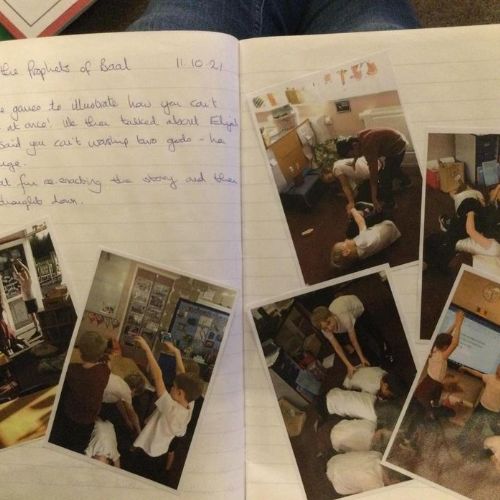 the Prophets of Baal 11.10.21
games to illustrate how you can't
at once! We then talked about Elijah
said you can't worship two gods - he
fun re-enacting the story and their
thoughts down.